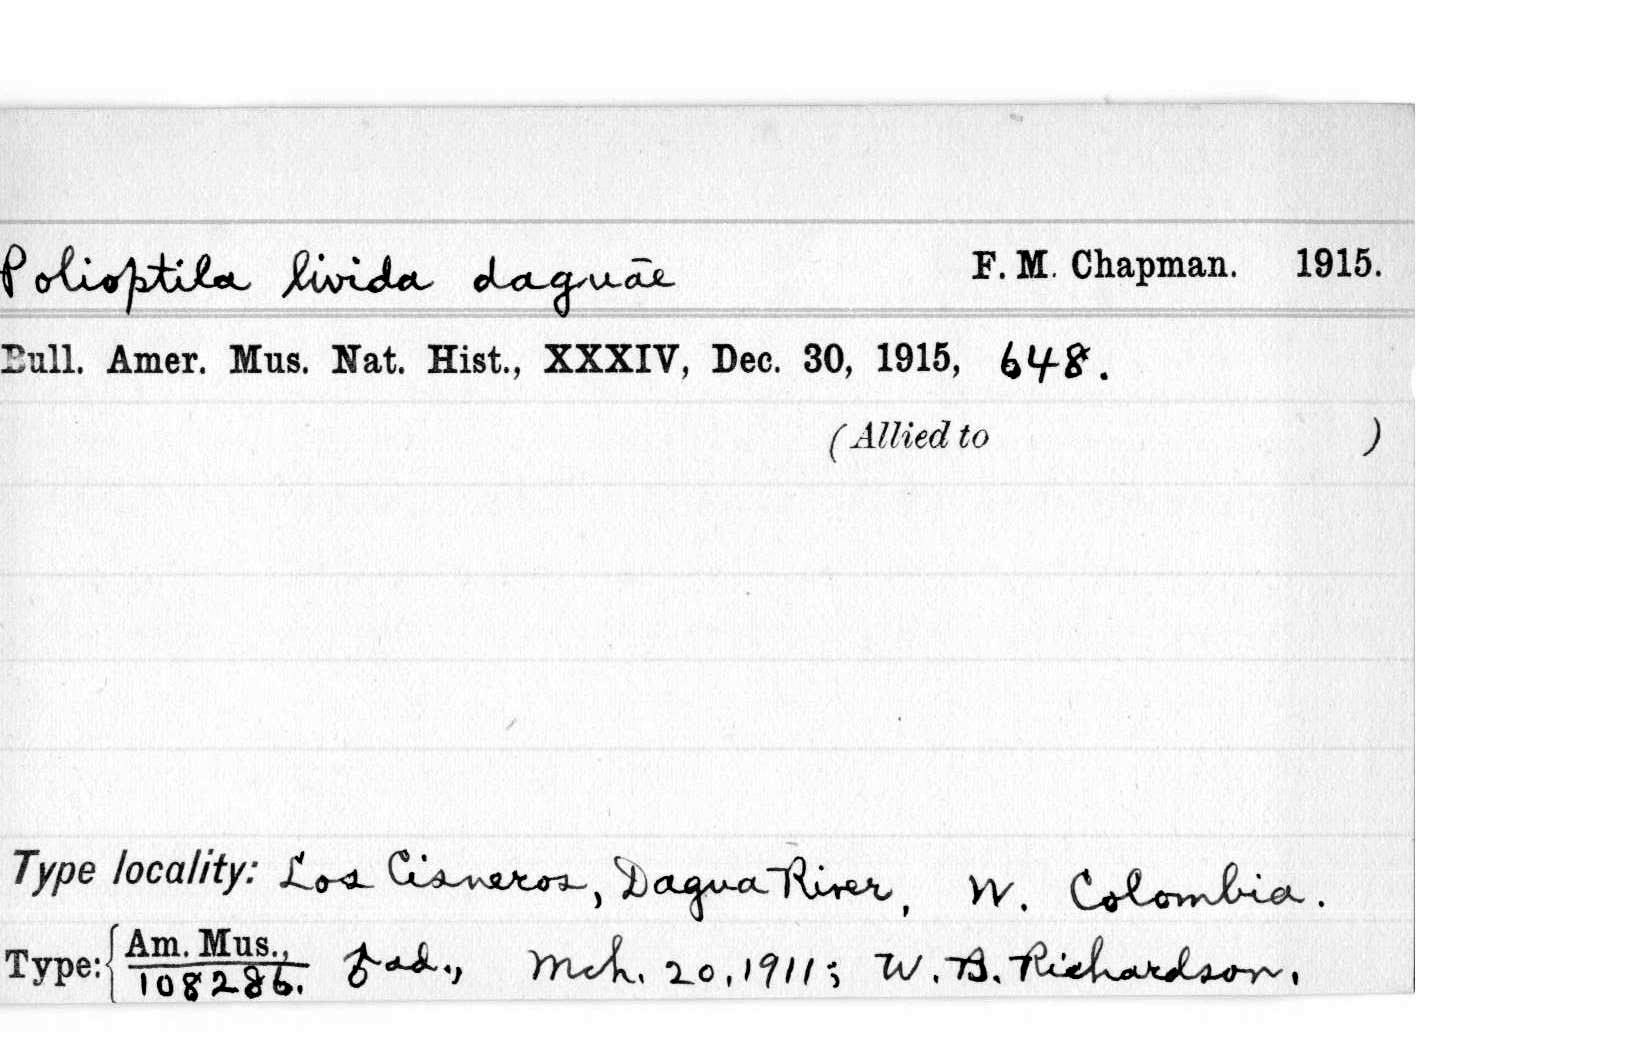 Polioptila livida daguāe F. M. Chapman. 1915.
Bull. Amer. Mus. Nat. Hist., XXXIV, Dec. 30, 1915, 648.
(Allied to )
Type locality: Los Cisneros, Dagua River, W. Colombia.
Type: { Am. Mus., 108286. ad., Mch. 20, 1911; W. B. Richardson.